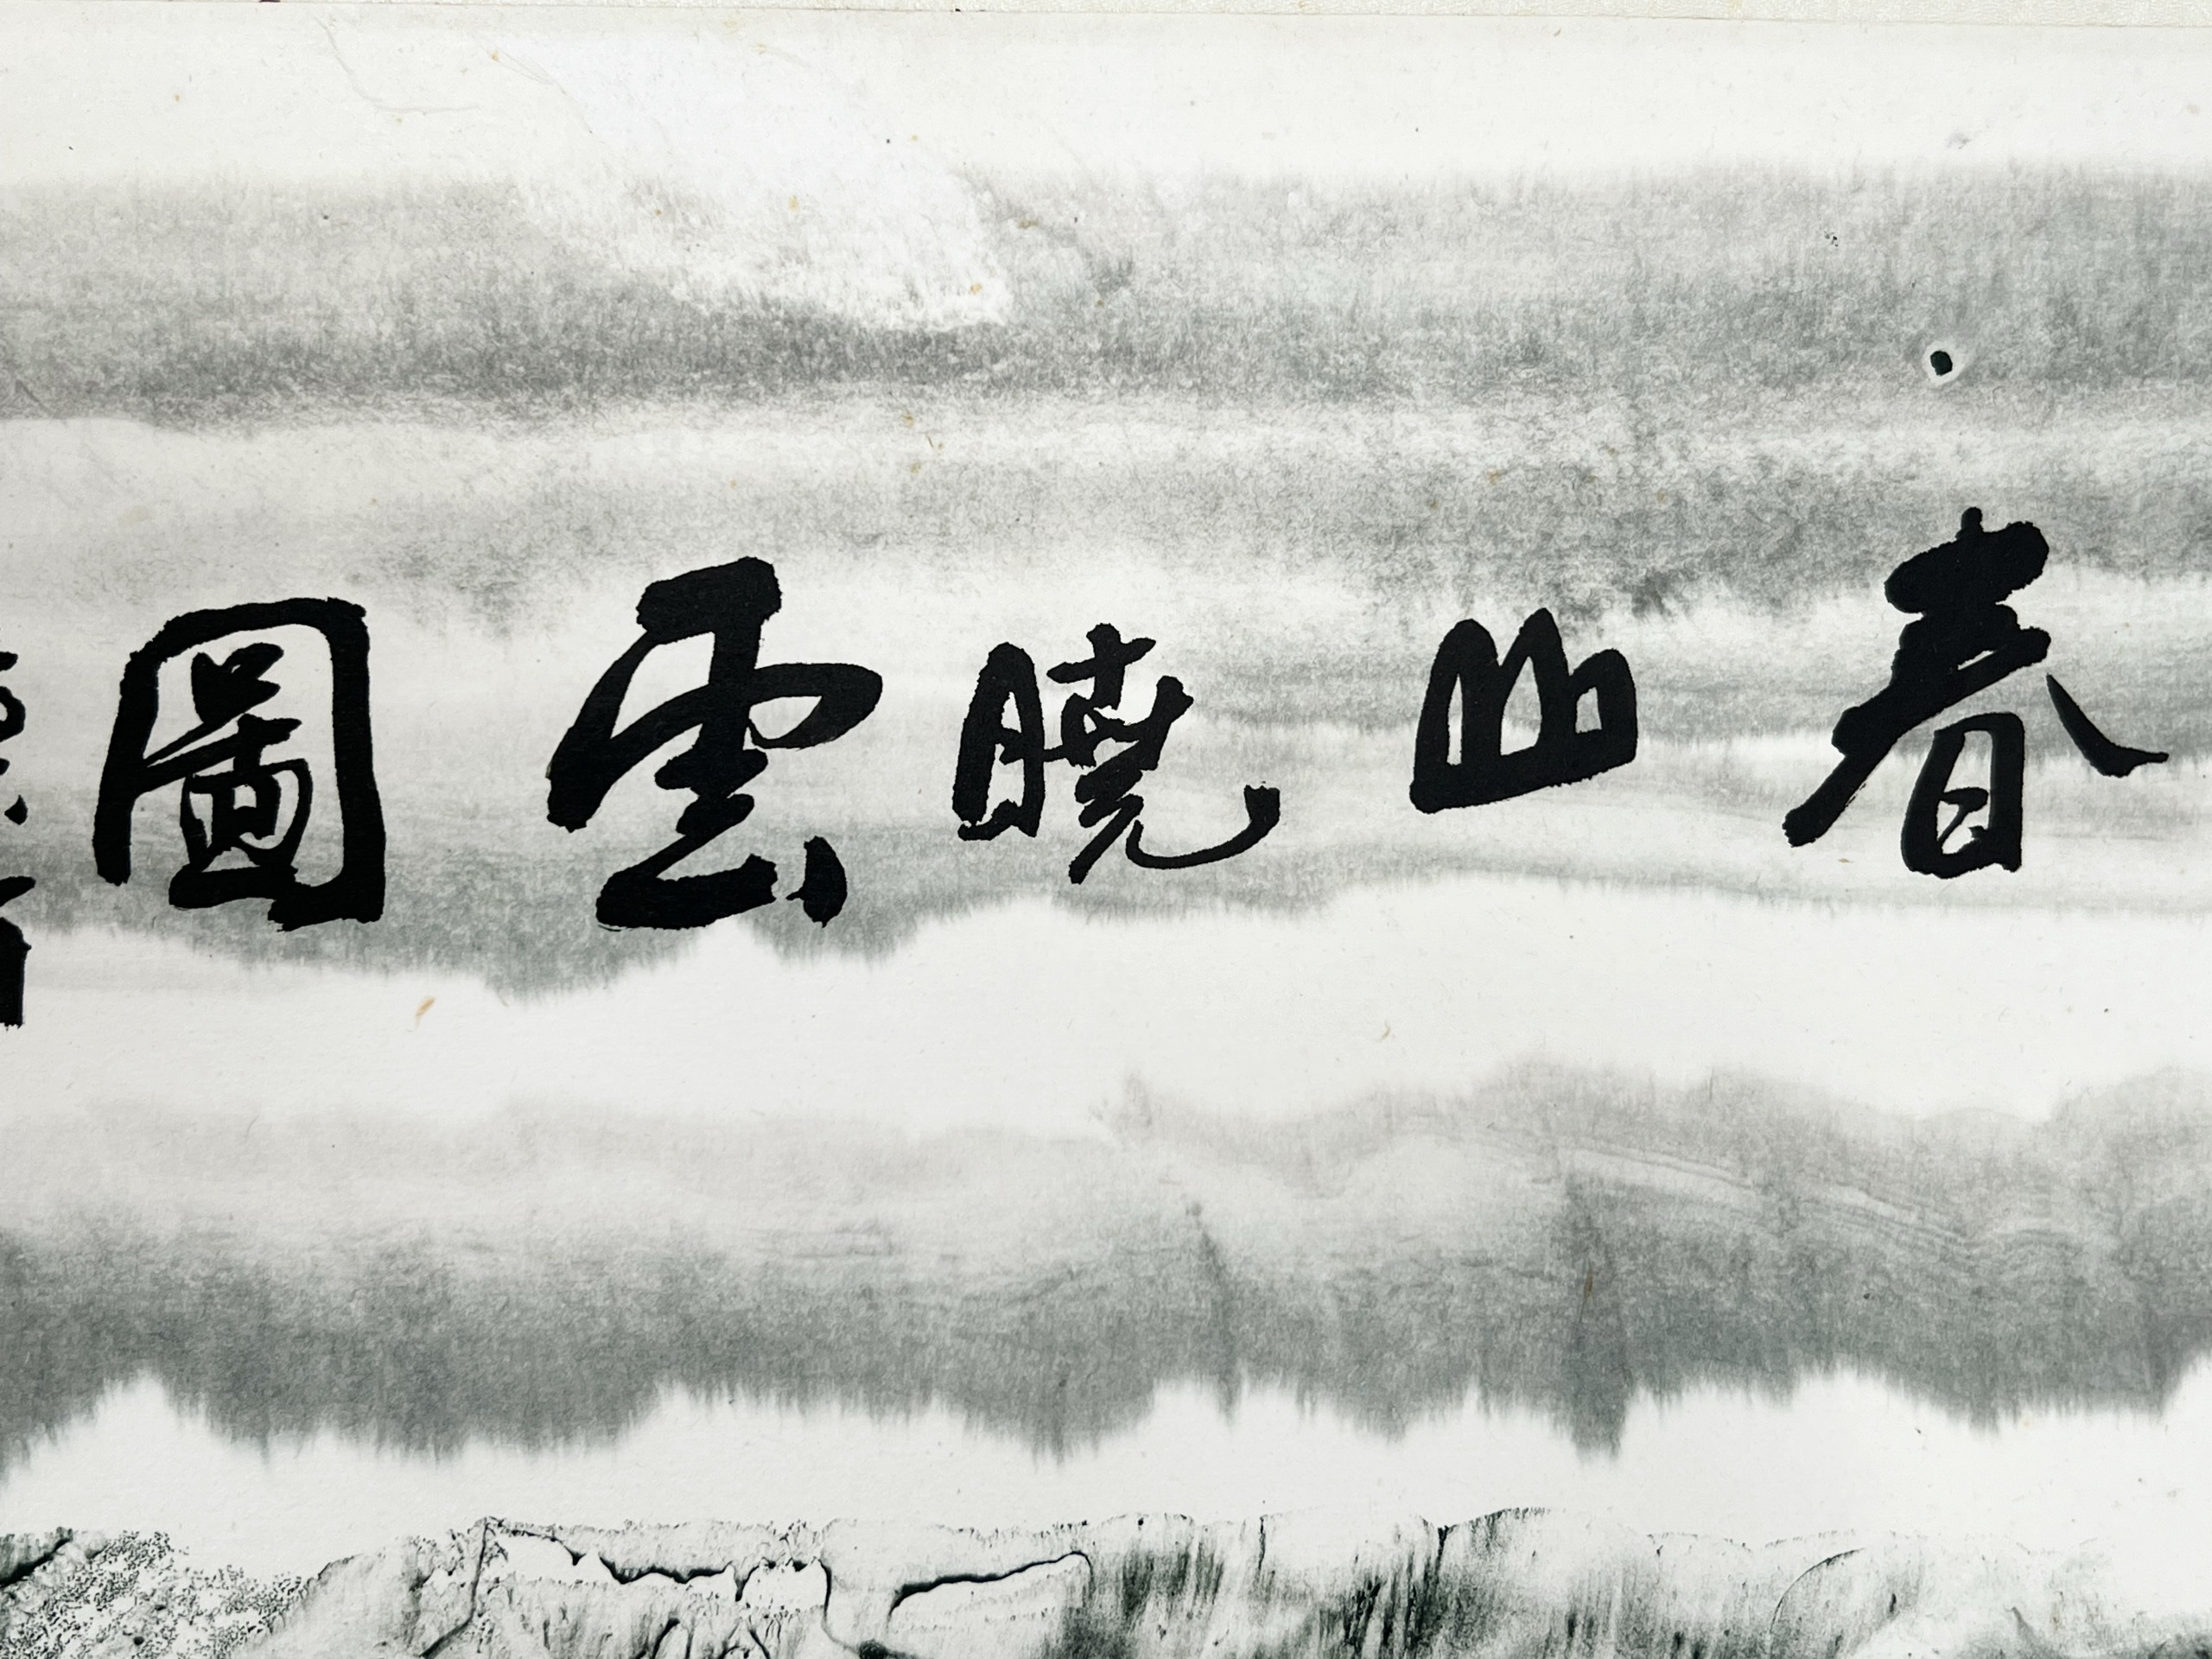 春山曉雲圖